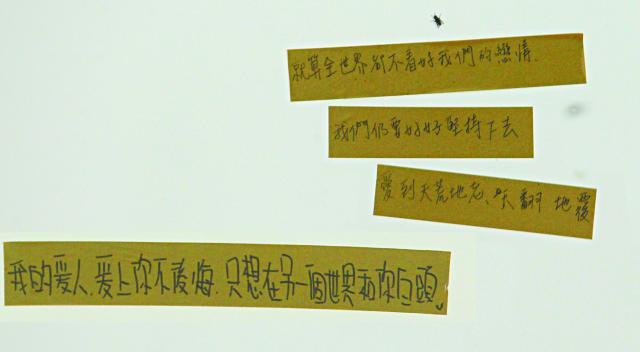 就算全世界都不看好我們的戀情.
我們仍要好好堅持下去
愛到天荒地老、天翻地覆
我的爱人.爱上你不後悔.只想在另一個世界和你白頭。